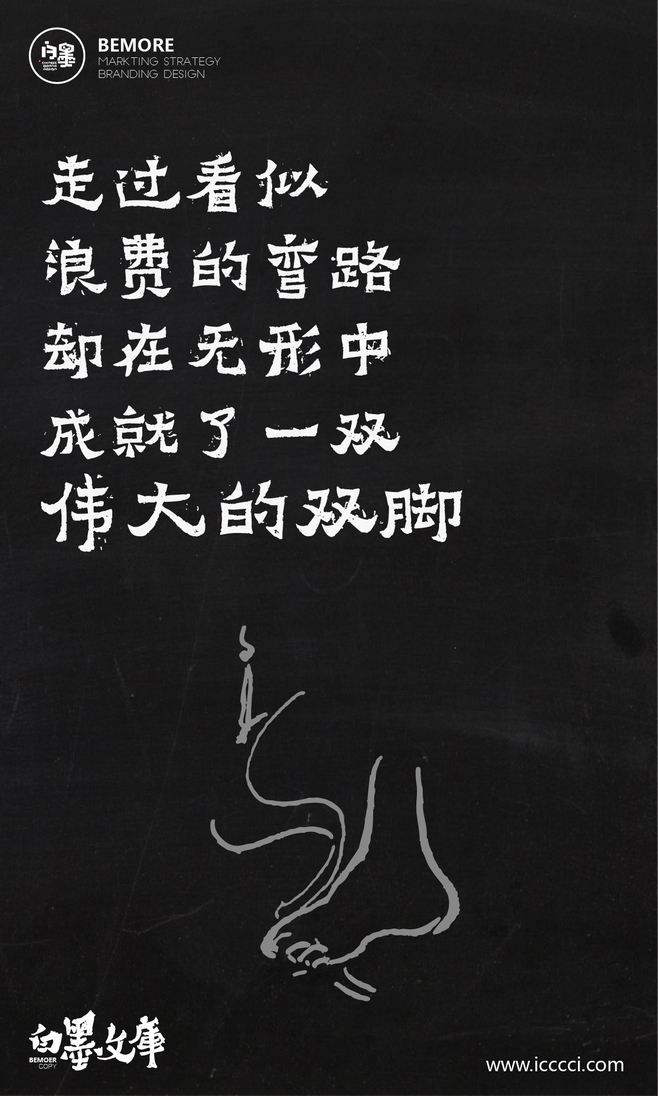 白墨
BEMORE
MARKTING STRATEGY
BRANDING DESIGN
走过看似
浪费的弯路
却在无形中
成就了一双
伟大的双脚
白墨文庫
BEMOER
COPY
www.icccci.com